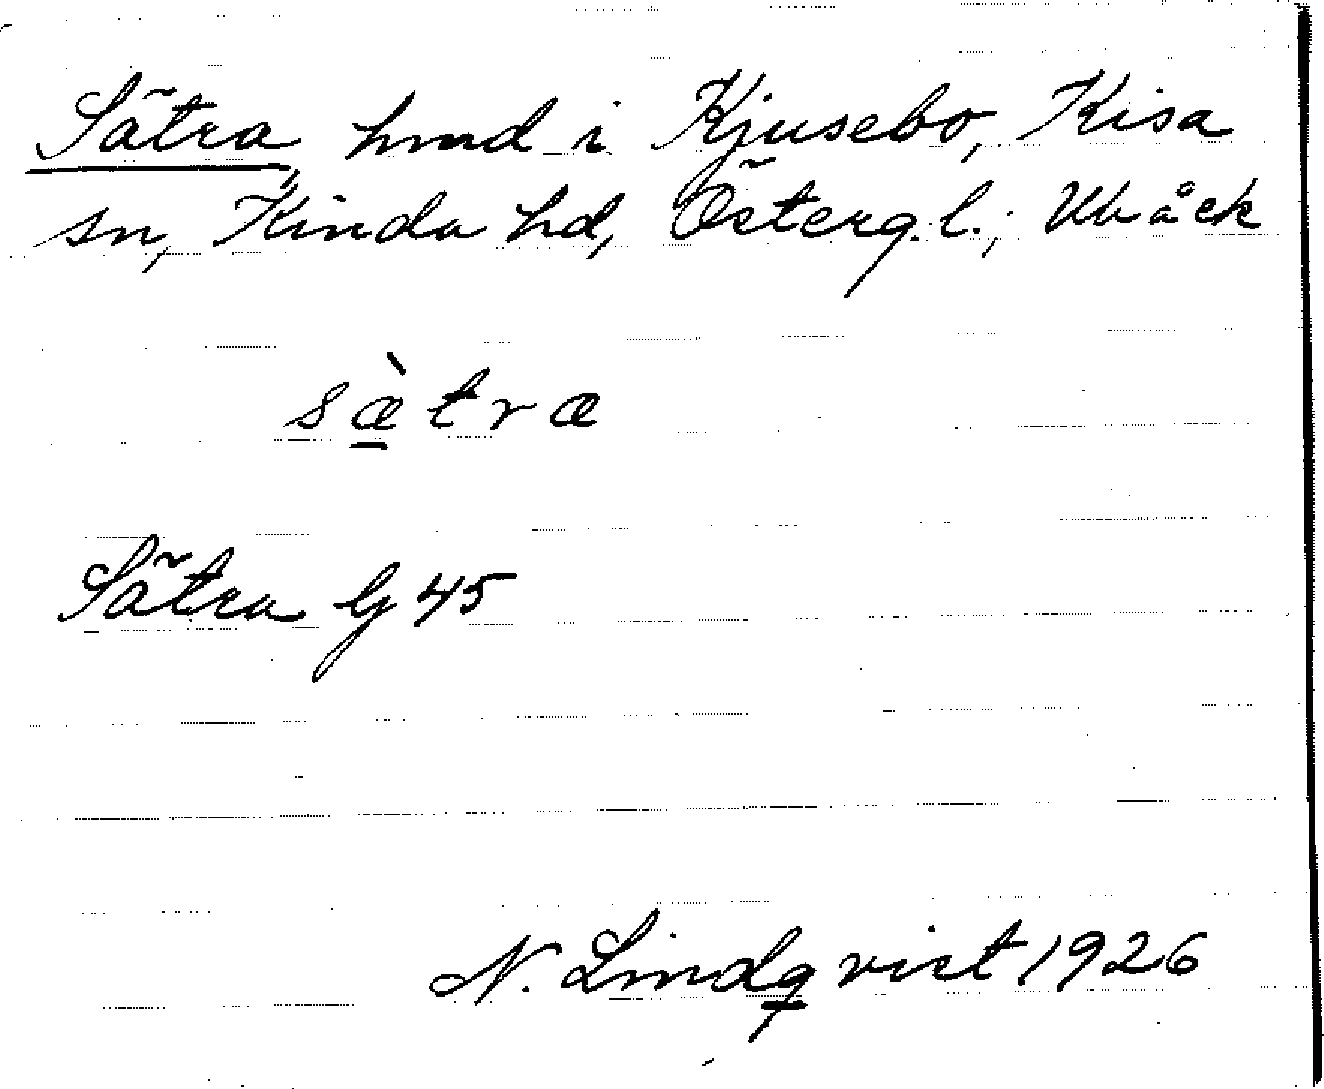 Sätra, hmd i Kjusebo, Kisa
sn, Kinda hd, Österg.l.; Ubåck
sæ̠̀træ
Sätra G 45
N. Lindqvist 1926